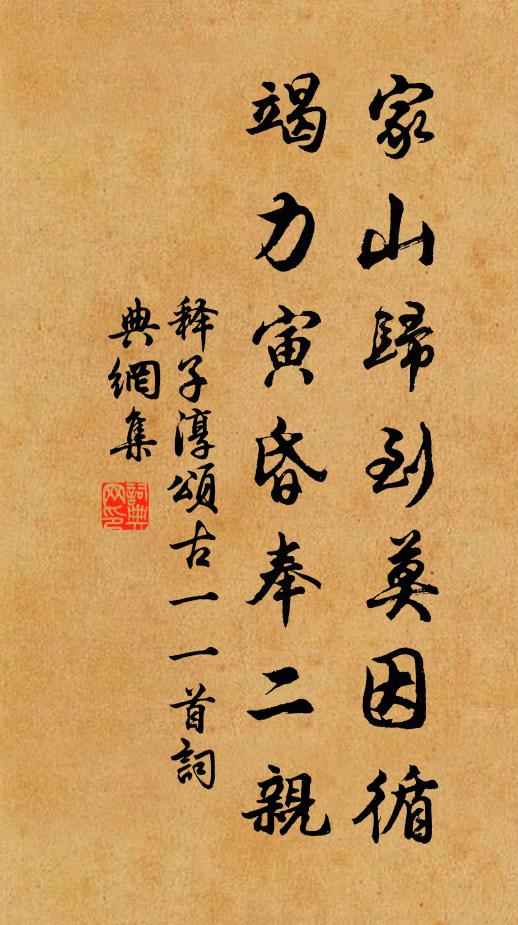 家山歸到莫因循
竭力寅昏奉二親
释子淳頌古一一首詞
典網集
詞典
网印